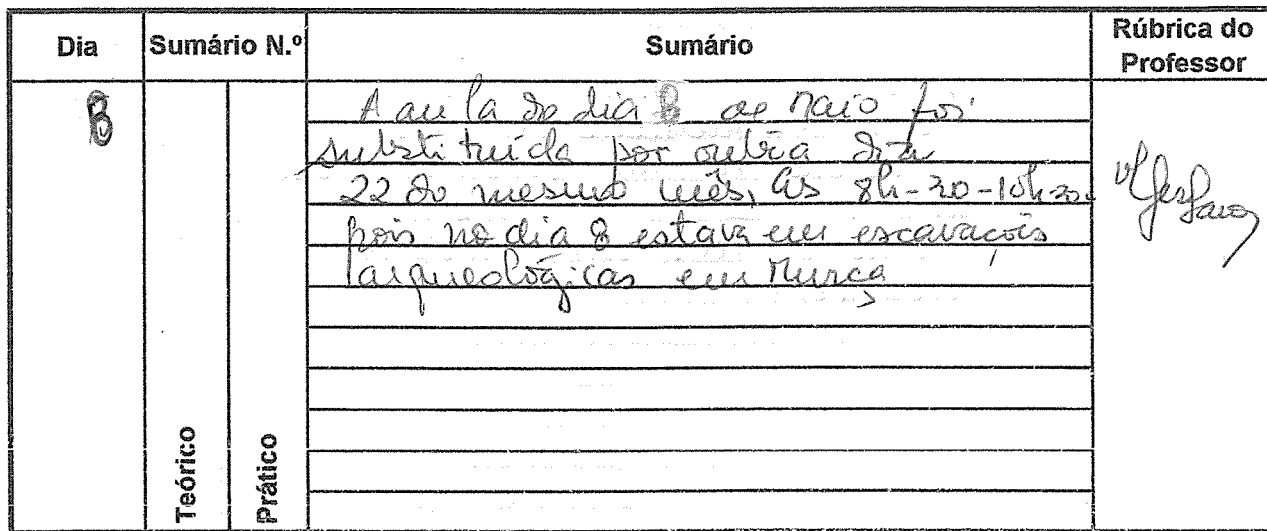 Dia Sumário N.º Sumário Rúbrica do Professor
8
A aula do dia 8 de Maio foi
substituída por outra dia
22 do mesmo mês, às 8h-30-10h30.
pois no dia 8 estava em escavações
arqueológicas em Murça
Teórico
Prático